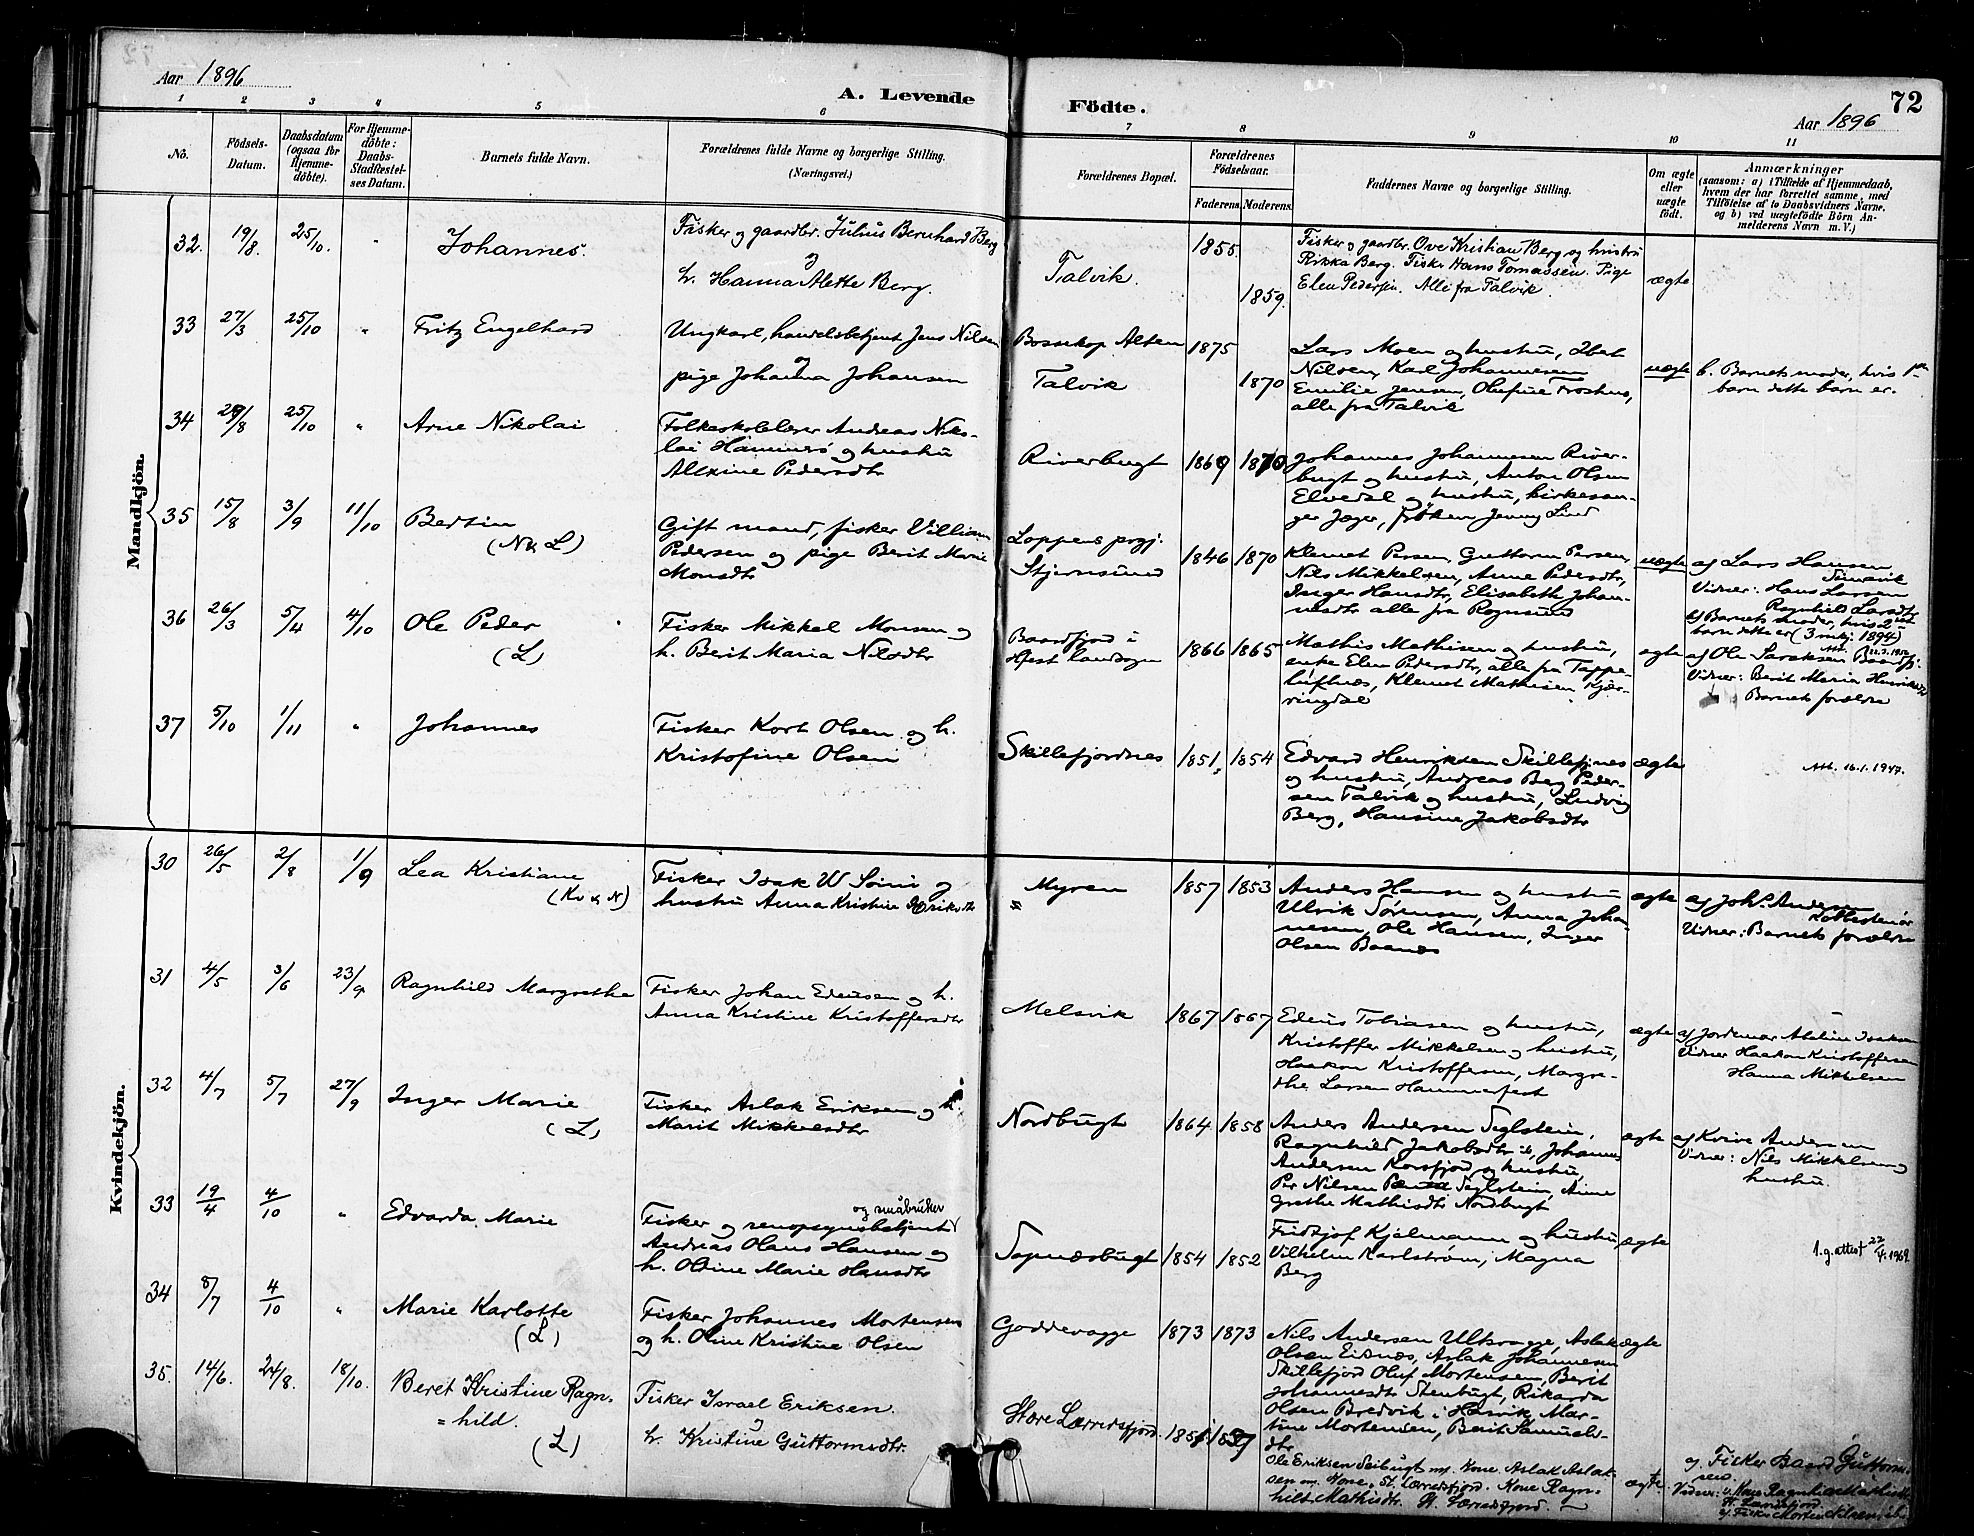 Aar 1896
A. Levende
Födte.
72
Aar 1896
1 2 3 4 5 6 7 8 9 10 11
No.
Födsels-
Datum.
Daabsdatum
(ogsaa for
Hjemme-
döbte).
For Hjemme-
döbte:
Daabs-
Stadfæstel-
ses Datum.
Barnets fulde Navn.
Forældrenes fulde Navne og borgerlige Stilling.
(Næringsvei.)
Forældrenes Bopæl.
Forældrenes
Födselsaar.
Faderens. Moderens.
Faddernes Navne og borgerlige Stilling.
Om ægte
eller
uægte
födt.
Anmærkninger
(saasom: a) i Tilfælde af Hjemmedaab,
hvem der har forrettet samme, med
Tilföielse af to Daabsvidners Navne.
og b) ved uægtefödte Börn An-
melderens Navn m. V.)
Mandkjön.
32. 19/8. 25/10. " Johannes.
Fisker og gaardbr. Julius Bernhard Berg
og
h. Hanna Alette Berg.
Talvik.
1855.
1859.
Fisker og gaardbr. Ove Kristian Berg og hustru
Rikka Berg. Fisker Hans Tomassen. Pige
Elen Pedersen. Alle fra Talvik.
ægte
33 27/3 25/10 " Fritz Engelhard
Ungkarl, handelsbetjent Jens Nilsen
og
pige Johanna Johansen
Bossekop Alten
Talvik
1875
1870
Lars Moen og hustru,
Nilsen, Karl Johannesen
Emilie Jensen, Olufine Froshus,
alle fra Talvik
uægte
b. Barnets moder, hvis 1ste
barn dette barn er.
34 29/8 25/10 " Arne Nikolai
Folkeskolelærer Andreas Niko-
lai Hammerø og hustru
Alexine Pedersdtr
Riverbugt 1869 1870
Johannes Johannesen River-
bugt og hustru, Anton Olsen
Elvedal og hustru, kirkesan-
ger Jæger, frøken Jenny Lind
35 15/8 3/9 11/10 Bertin
(N & L)
Gift mand, fisker Villiam
Pedersen og pige Berit Marie
Monsdtr
Loppens prgj.
Stjernsund
1846 1870
Klemet Persen, Guttorm Persen,
Nils Mikkelsen, Anne Pedersdtr,
Inger Hansdtr, Elisabeth Johan-
nesdtr alle fra Rognsund
uægte
a) Lars Hansen
Simavik
Vidner: Hans Larsen
Ragnhild Larsdtr
b) Barnets moder, hvis 2det
barn dette er (3 mkj. 1894)
36 26/3 5/4 4/10 Ole Peder
(L)
Fisker Mikkel Monsen og
h. Berit Maria Nilsdtr
Baardfjord i
Hfest landsogn
1866 1865
Mathis Mathisen og hustru,
enke Elen Pedersdtr, alle fra Tappe-
luftnæs, Klemet Mathisen Kjær-
ringdal
ægte
a) Ole Saraksen Baardfj.
Vidner: Berit Maria Henriksdtr
Barnets forældre
37 5/10 1/11 " Johannes
Fisker Kort Olsen og h.
Kristofine Olsen
Skillefjordnes 1851 1854
Edvard Henriksen Skillefjnes
og hustru, Andreas Berg Peder-
sen Talvik og hustru, Ludvig
Berg, Hansine Jakobsdtr
ægte
Att. 16.1.1947.
Kvindekjön.
30 26/5 2/8 1/9 Lea Kristiane
(Kv & N)
Fisker Isak W Soini og
hustru Anna Kristine Eriksdtr
Myren 1857 1853
Anders Hansen og hustru
Ulrik Sørensen, Anna Joha-
nesen, Ole Hansen, Inger
Olsen Baanæs
ægte
a) Johs. Andersen
Vidner: Barnets forældre
31 4/5 3/6 23/9 Ragnhild Margrethe
Fisker Johan Edensen og h.
Anna Kristine Kristoffersdtr
Melsvik 1867 1867
Edens Tobiasen og hustru,
Kristoffer Mikkelsen og hustru,
Haakon Kristoffersen, Margre-
the Larsen Hammerfest
ægte
a) Jordemor Adeline Isaksen
Vidner Haakon Kristoffersen
Hanna Mikkelsen
32 4/7 5/7 27/9 Inger Marie
(L)
Fisker Aslak Eriksen og h.
Marit Mikkelsdtr
Nordbugt 1864 1858
Anders Andersen Seglstein,
Ragnhild Jakobsdtr, Johannes
Andersen Korsfjord og hustru,
Per Nilsen Seglstein, Anne
Grethe Mathisdtr Nordbugt
ægte
a) Kvive Andersen
Vidner: Nils Mikkelsen og
hustru.
33 19/4 4/10 " Edvarda Marie
og småbruker
Fisker og renopsynsbetjent
Andreas Olaus Hansen og
h. Oline Marie Hansdtr
Sopnæsbugt 1854 1852
Fridtjof Kjelmann og hustru
Vilhelm Karlstrøm, Magna
Berg
ægte
1.g.attest 22/5.1969.
34 8/7 4/10 " Marie Karlotte
(L)
Fisker Johannes Mortensen
og h. Oline Kristine Olsen
Goddevagge 1873 1873
Nils Andersen Ultsvagge, Aslak
Olsen Eidsnæs, Aslak Johannesen
Skillefjord Oluf Mortensen, Berit
Johannesdtr Stenbugt, Rikarda
Olsen Bredvik i Hasvik, Mar-
tine Mortensen, Berit Samuels-
dtr
ægte
35. 14/6. 24/8. 18/10. Beret Kristine Ragn-
=hild.
(L)
Fisker Israel Eriksen.
og
h. Kristine Guttormsdtr.
Store Lerredsfjord. 1851. 1857
Ole Eriksen Seibugt m. Kone. Aslak Aslak-
sen m. Kone, St. Lerredsfjord. Kone Ragn-
hild Mathisdtr. St. Lerredsfjord.
ægte.
a) Fisker Baard Guttorm-
sen.
Vidner: Kone Ragnhild Mathisdtr
St. Lerredsfjord